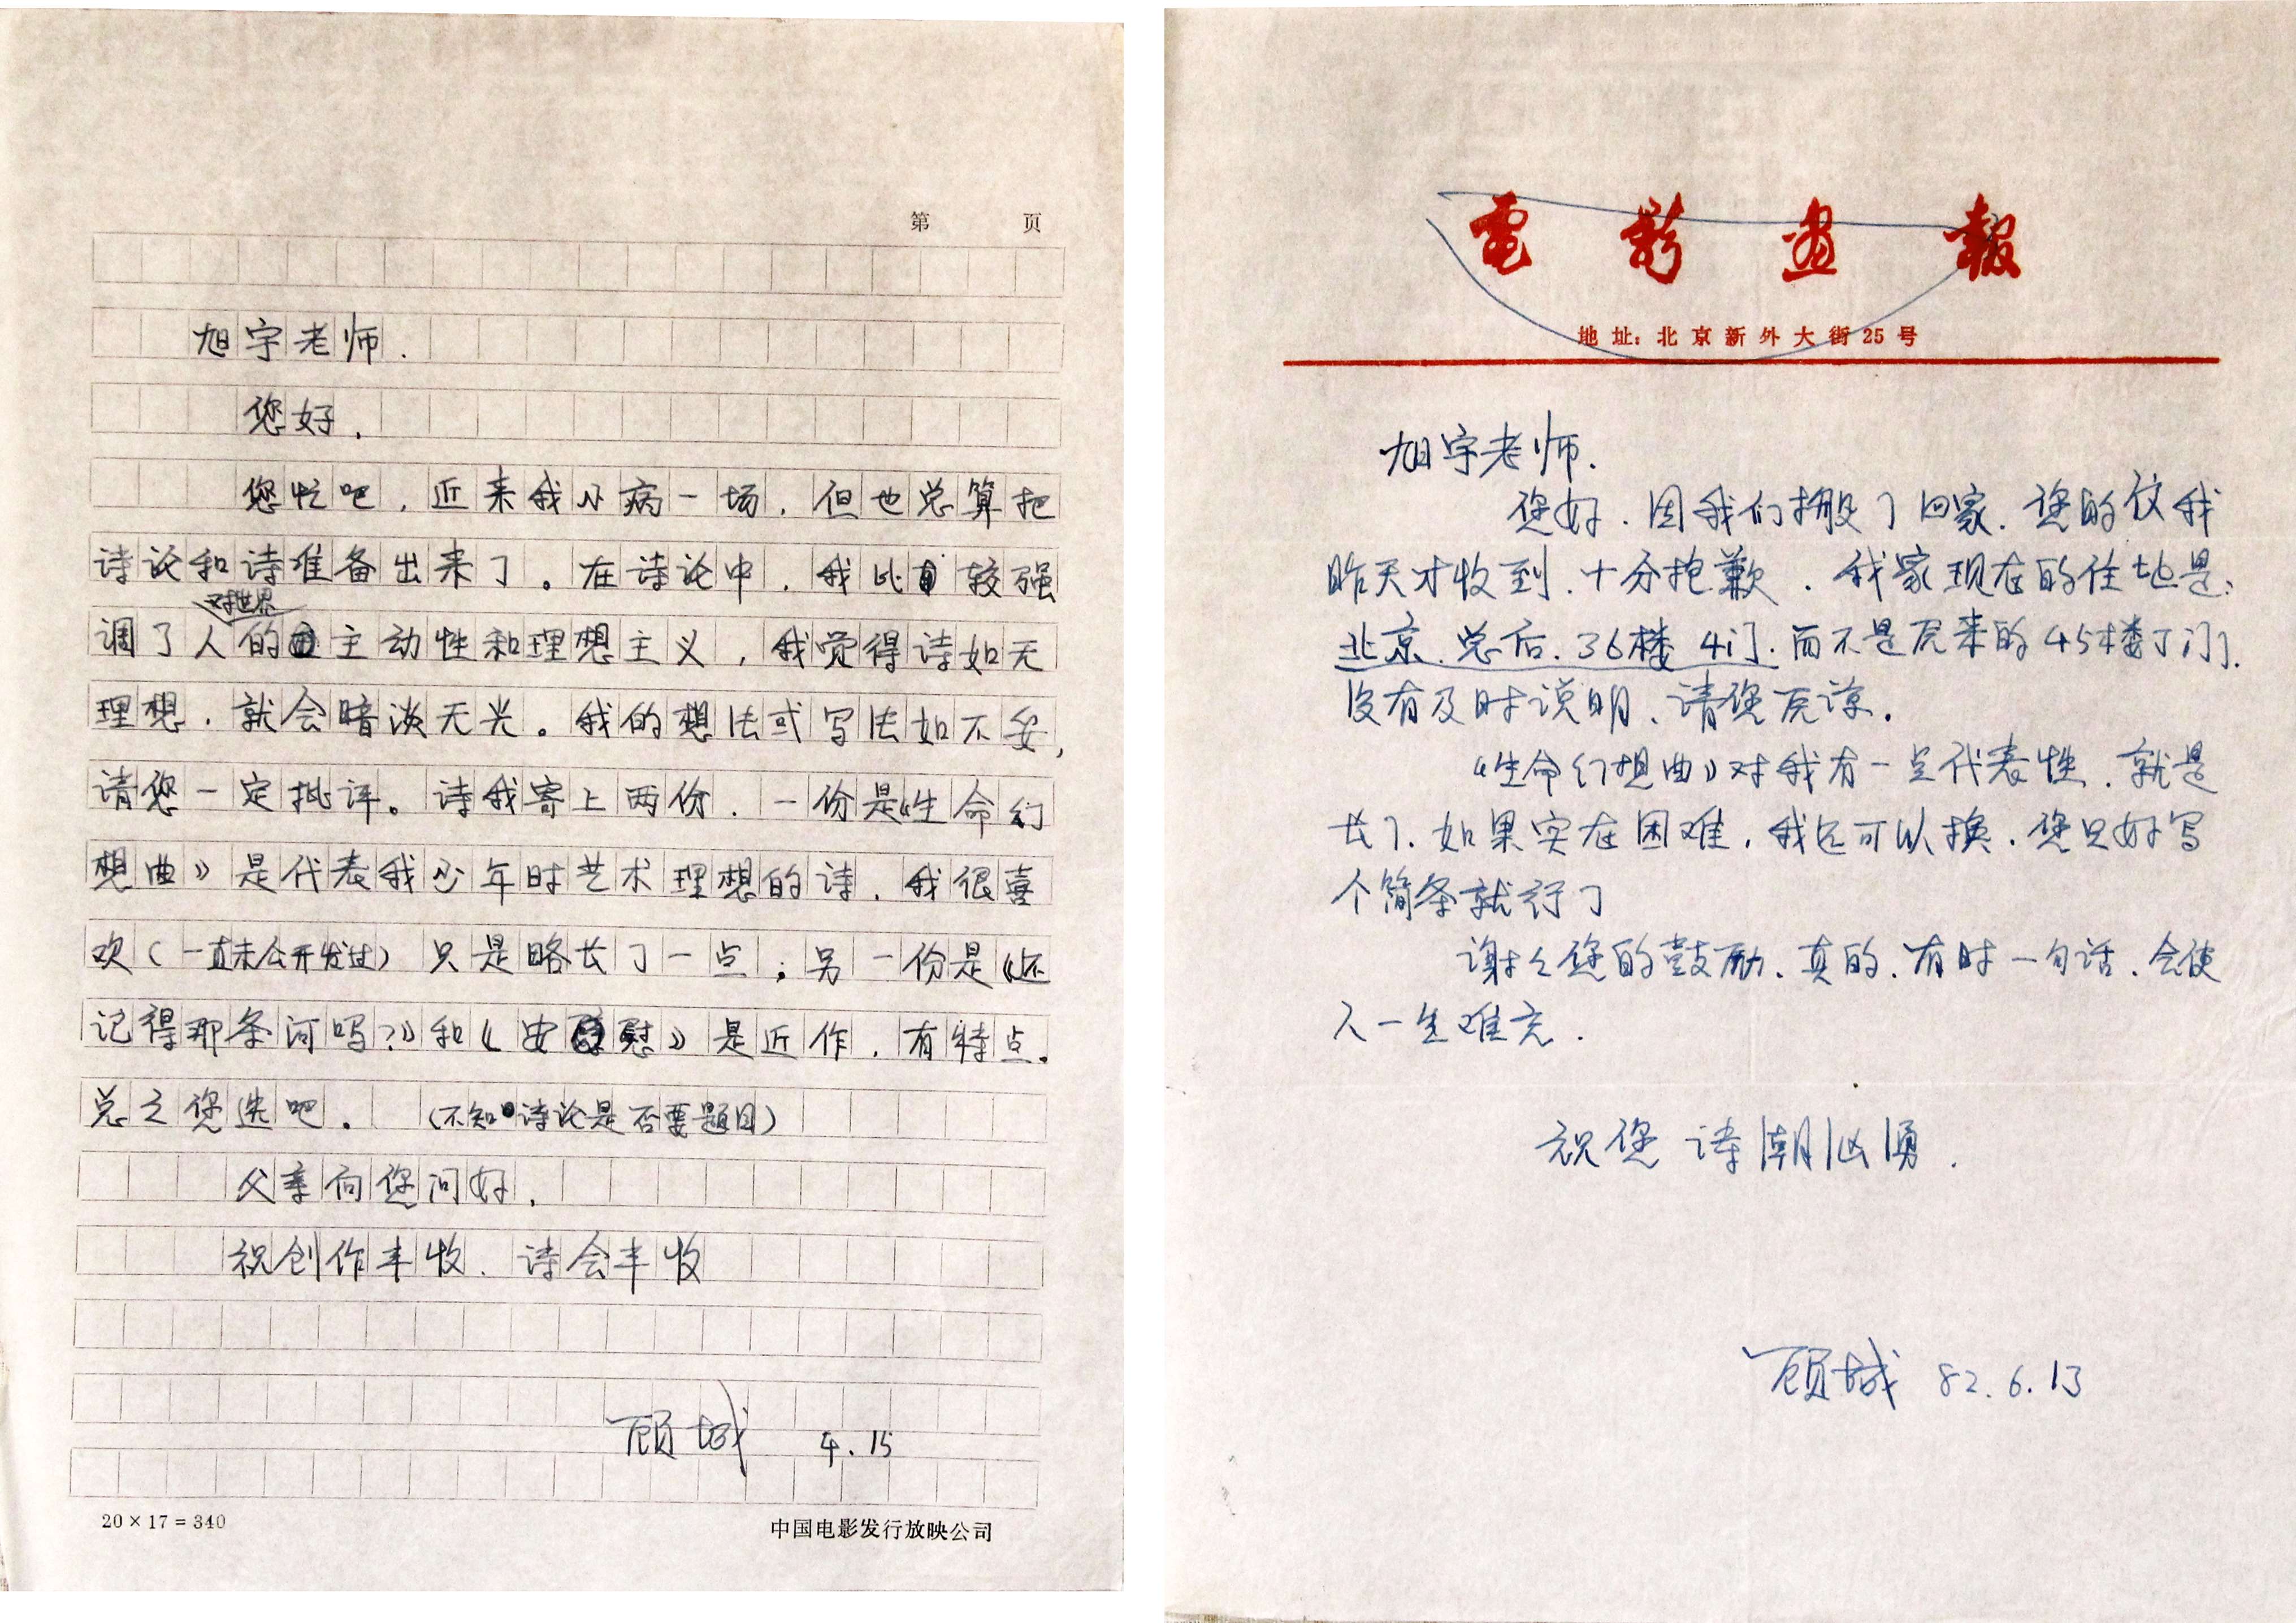 第 页
旭宇老师.
您好.
您忙吧,近来我小病一场,但也总算把
诗论和诗准备出来了。在诗论中,我比较强
对世界
调了人的主动性和理想主义,我觉得诗如无
理想,就会暗淡无光。我的想法或写法如不妥,
请您一定批评。诗我寄上两份.一份是《生命幻
想曲》是代表我少年时艺术理想的诗,我很喜
欢(一直未公开发过)只是略长了一点;另一份是《还
记得那条河吗?》和《安慰》是近作,有特点.
总之您选吧. (不知诗论是否要题目)
父亲向您问好.
祝创作丰收、诗会丰收
顾城 4.15
20×17=340
中国电影发行放映公司
電影画報
地址:北京新外大街25号
旭宇老师.
您好.因我们搬了回家.您的仪我
昨天才收到.十分抱歉.我家现在的住地是:
北京.总后.36楼 4门.而不是原来的45楼丁门.
没有及时说明、请您原谅.
《生命幻想曲》对我有一点代表性.就是
长了.如果实在困难,我还可以换.您只好写
个简条就行了
谢谢您的鼓励、真的、有时一句话.会使
人一生难忘.
祝您 诗潮汹涌.
顾城 82.6.13